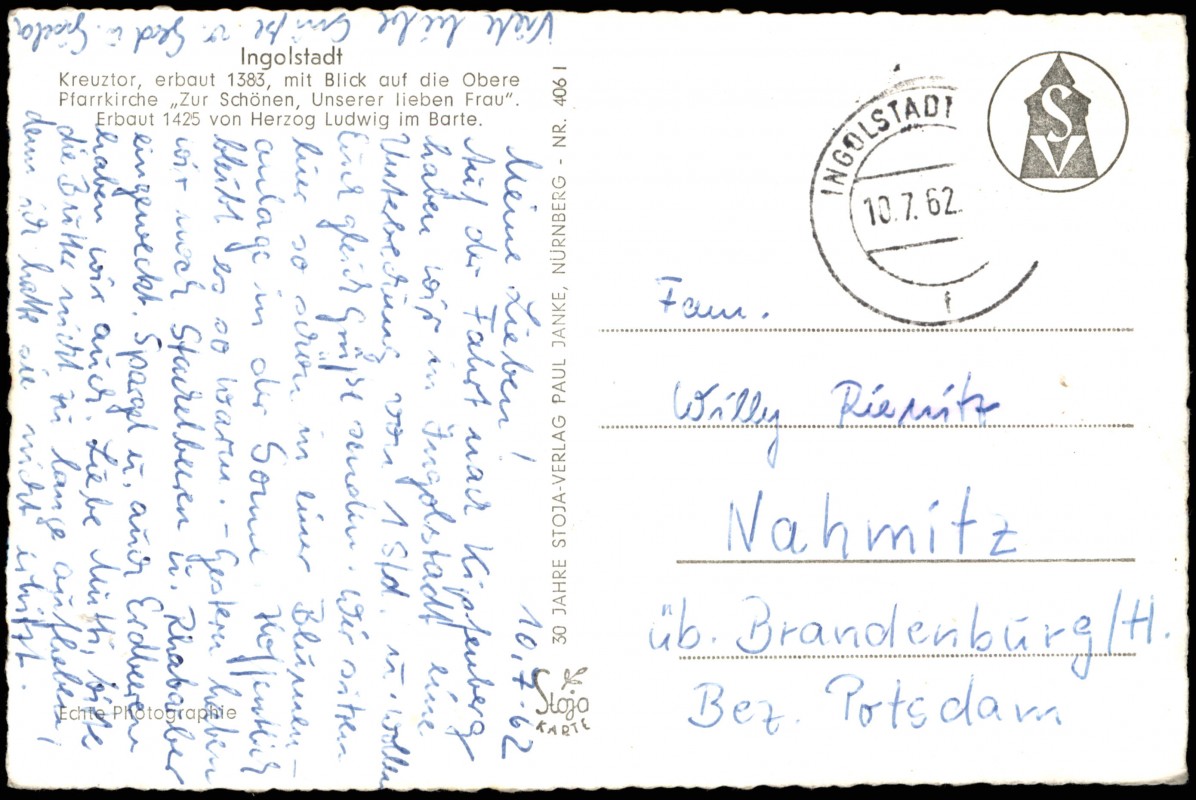 Ingolstadt
Kreuztor, erbaut 1383, mit Blick auf die Obere
Pfarrkirche „Zur Schönen, Unserer lieben Frau".
Erbaut 1425 von Herzog Ludwig im Barte.
10.7.62
Meine Lieben!
Auf der Fahrt nach Kipfenberg
haben wir in Ingolstadt eine
Unterbrechung von 1 Std. u. wollen
Euch gleich Grüße senden. Wir sitzen
hier so schön in einer Blumen-
anlage in der Sonne. Hoffentlich
bleibt es so warm. - Gestern haben
wir noch Stachelbeeren u. Rhabarber
eingeweckt. Spargel u. auch Erdbeeren
haben wir auch. Liebe Mutti, bitte
die Butter nicht zu lange aufheben,
denn ich hatte sie nicht erhitzt.
Viele liebe Grüße v.
Echte Photographie
30 JAHRE STOJA-VERLAG PAUL JANKE, NÜRNBERG - NR. 406 I
Stoja
KARTE
INGOLSTADT
10.7.62.
SV
Fam.
Willy
Nahmitz
üb. Brandenburg/H.
Bez. Potsdam